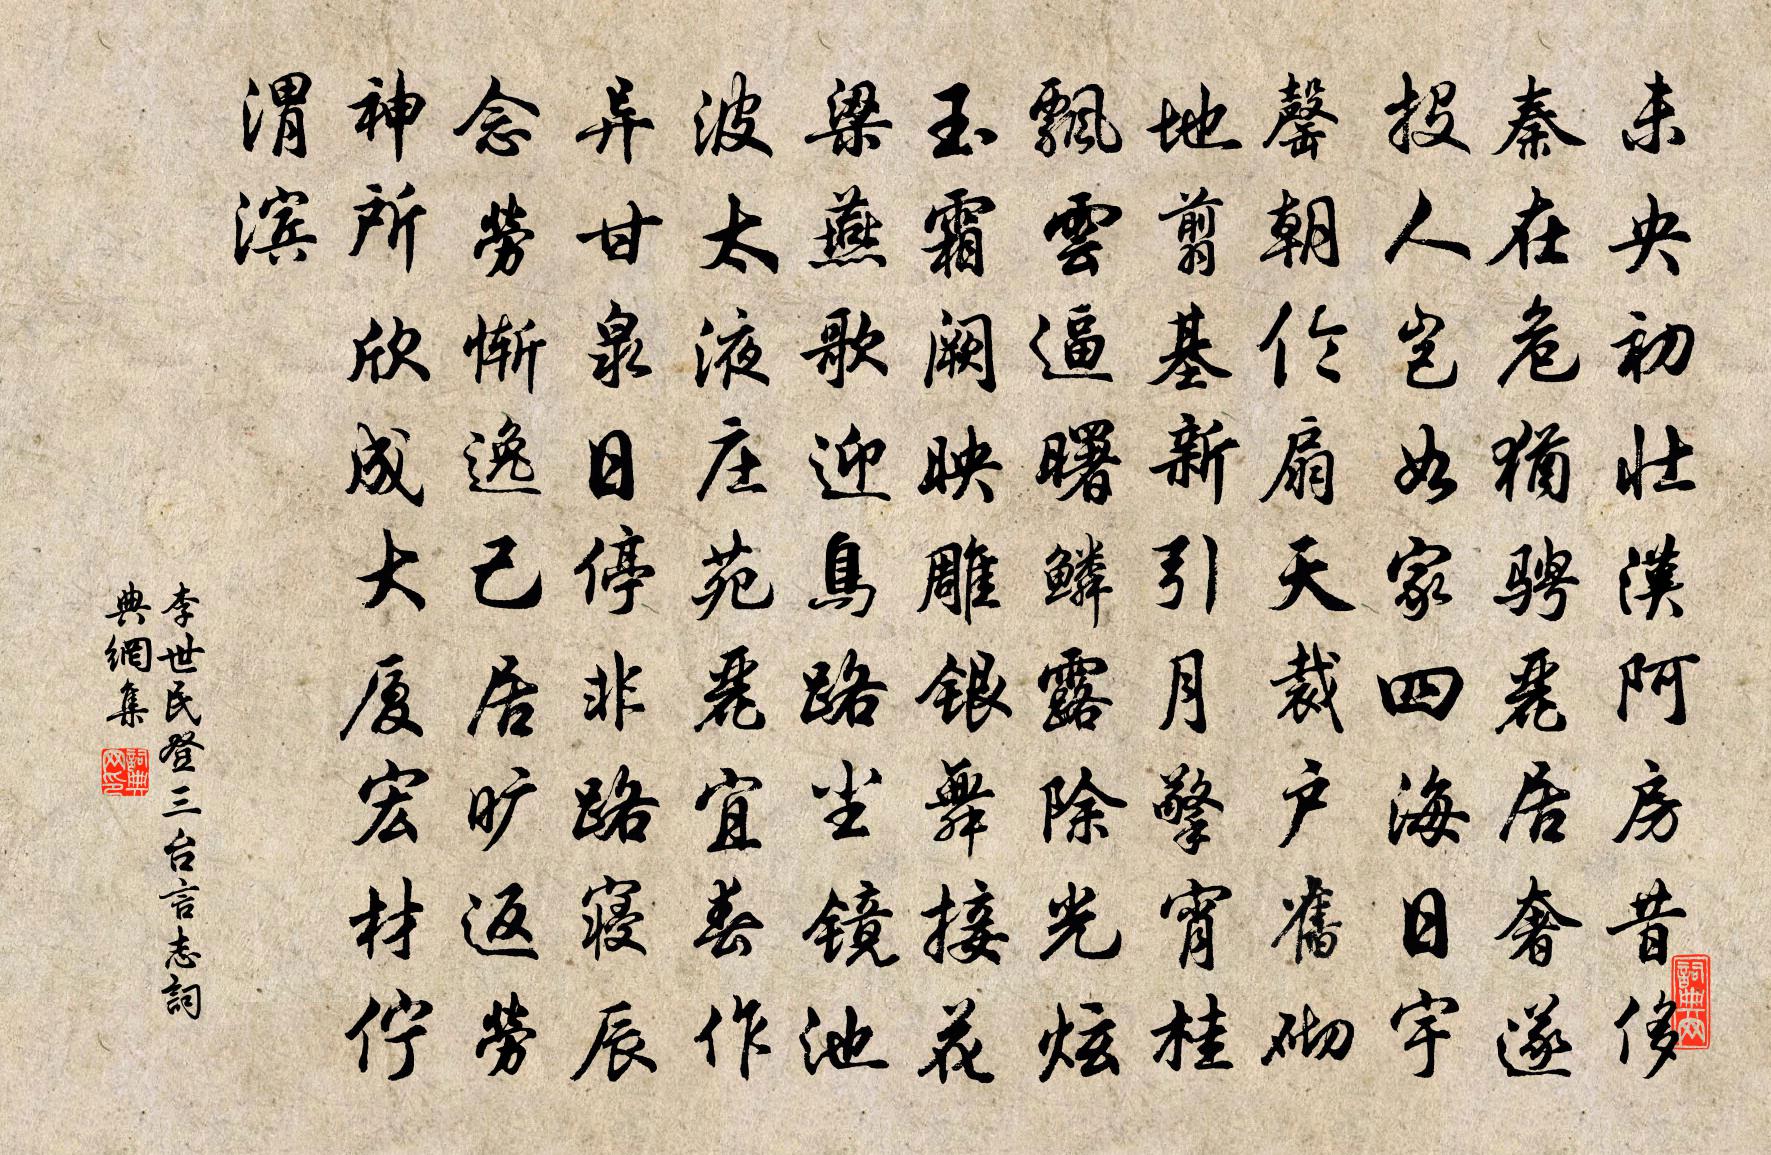 未央初壮漢阿房昔侈
秦在危猶骋麗居奢遂
投人岂如家四海日宇
罄朝伦扇天裁户舊砌
地翦基新引月擎宵桂
飄雲逼曙鳞露除光炫
玉霜阙映雕银舞接花
梁燕歌迎鳥路尘镜池
波太液庄苑麗宜春作
异甘泉日停非路寝辰
念勞惭逸己居旷返勞
神所欣成大厦宏材佇
渭滨
李世民登三台言志詞
典網集
詞典网
詞典网印